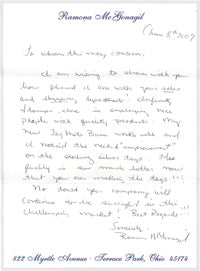 Ramona McGonagil
June 8th 2009
To whom this may concern:
I am writing to share with you
how pleased I am with your sales
and shipping departments. Definitely
a company is employing nice
people with quality products. My
new works well and
I noticed the need "improvement"
on the
quality is so much better now
that you are making the !!!
No doubt your company will
continue to be successful in this
challenging market! Best Regards
Sincerely,
Ramona McGonagil
822 Myrtle Avenue - Terrace Park, Ohio 45174